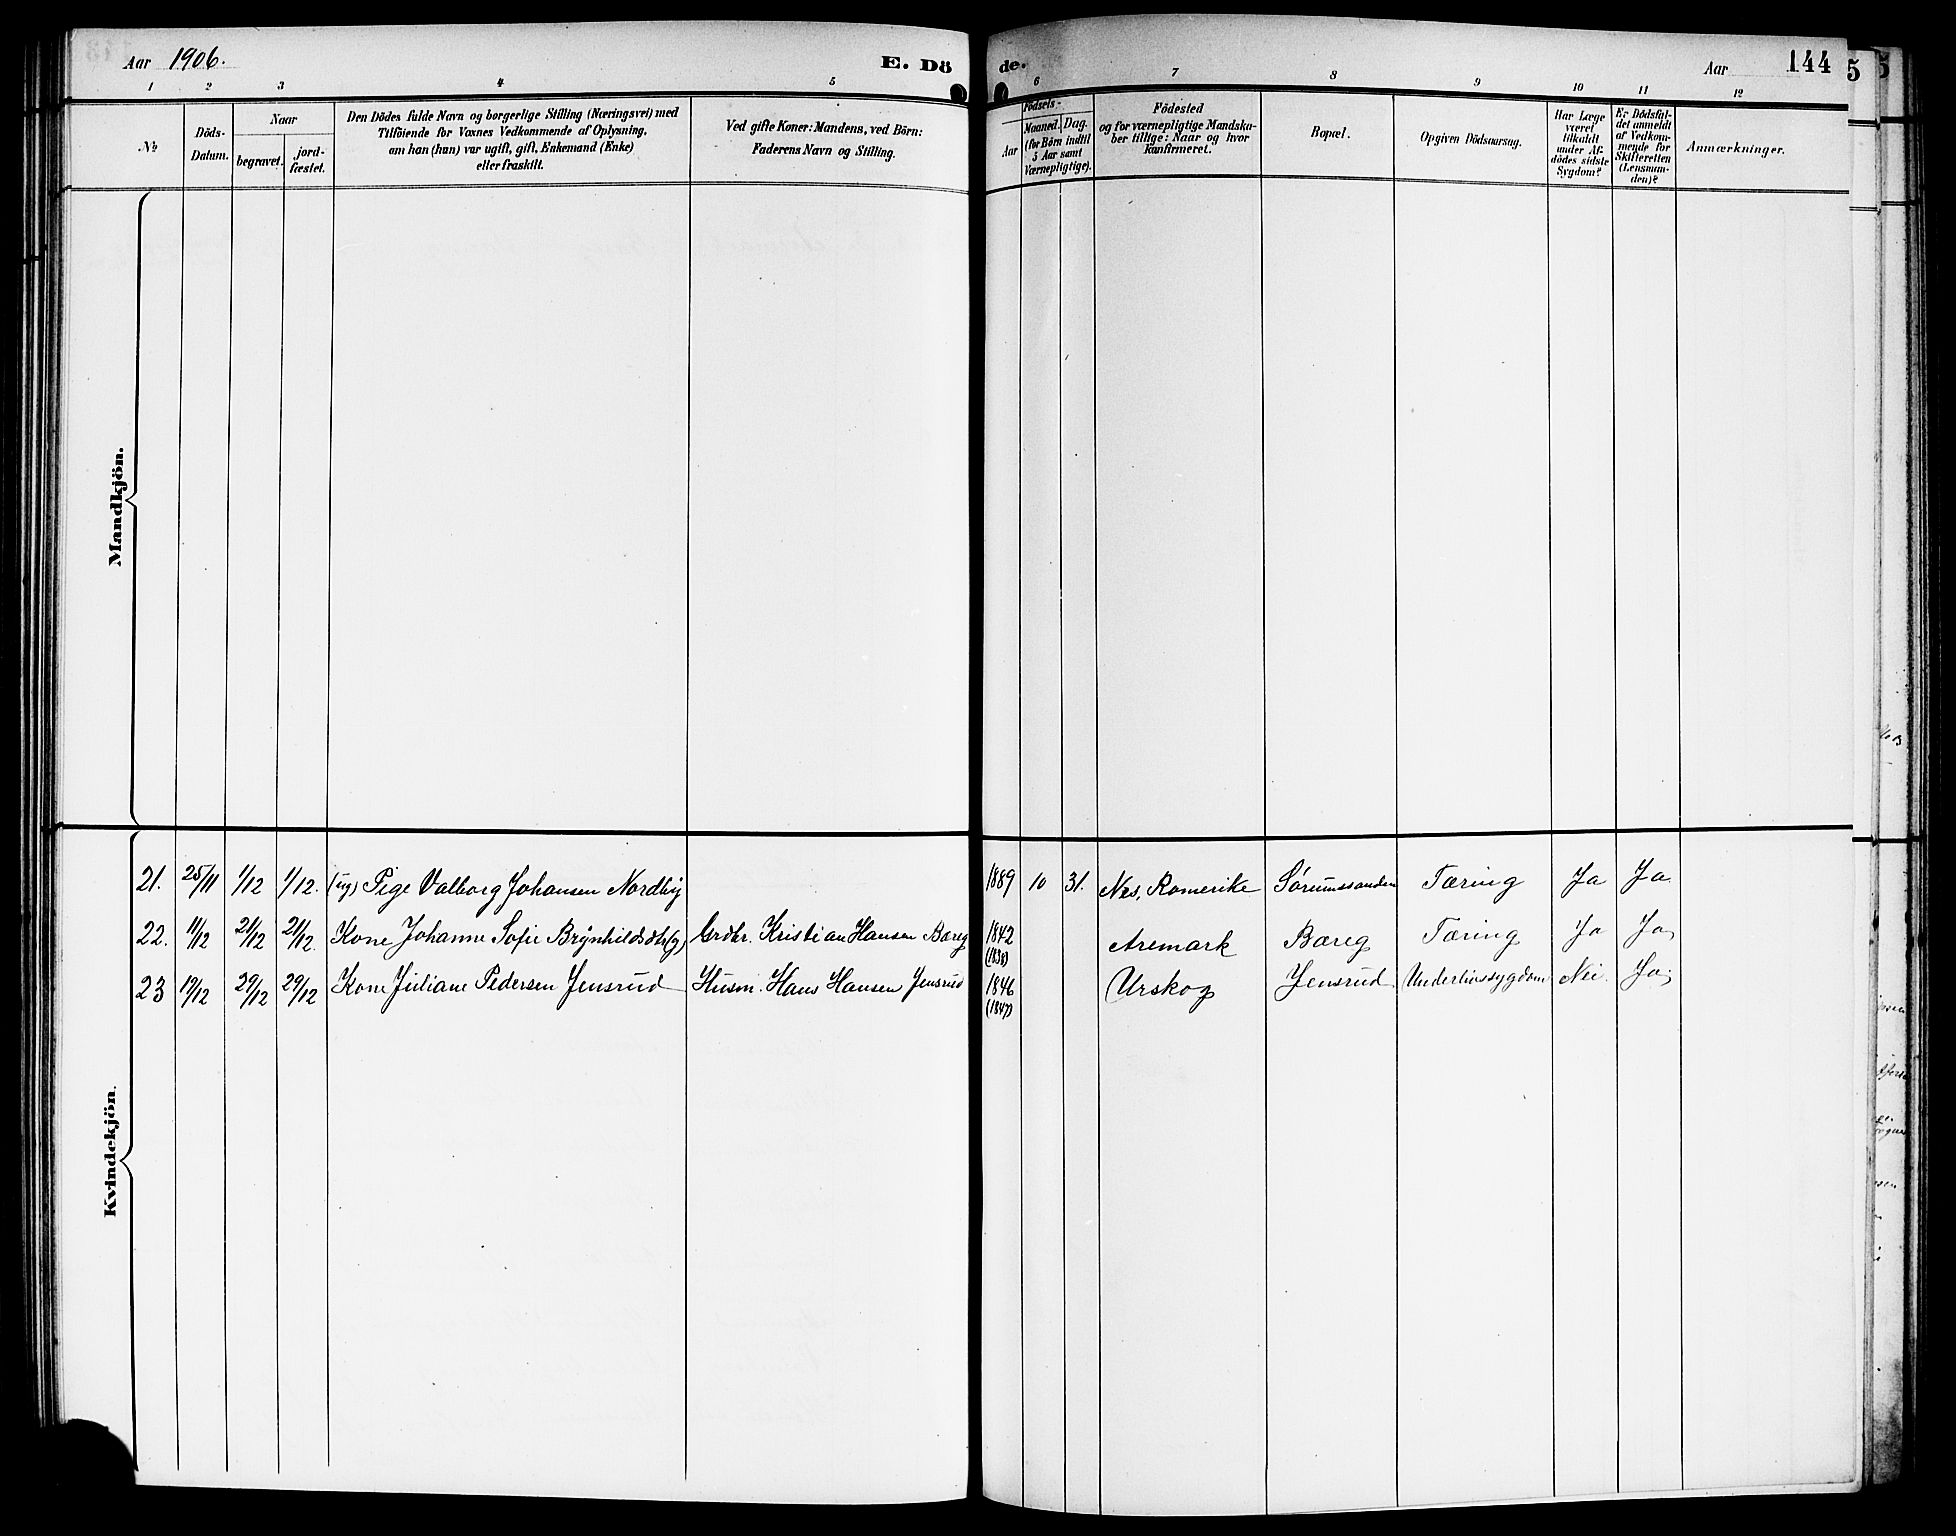 Aar 1906.
E. Dö
de.
Aar
144
5
1 2 3 4 5
6 7 8 9 10 11 12
№
Döds-
Datum.
Naar
begravet.
jord-
fæstet.
Den Dödes fulde Navn og borgerlige Stilling (Næringsvei) med
Tilföiende for Voxnes Vedkommende af Oplysning,
om han (hun) var ugift, gift, Enkemand (Enke)
eller fraskilt.
Ved gifte Koner: Mandens, ved Börn:
Faderens Navn og Stilling.
Födsels-
Aar
Maaned. Dag.
(for Börn indtil
5 Aar samt
Værnepligtige).
Födested
og for værnepligtige Mandska-
ber tillige: Naar og hvor
konfirmeret.
Bopæl.
Opgiven Dödsaarsag.
Har Læge
været
tilkaldt
under Af-
dödes sidste
Sygdom?
Er Dödsfal-
det anmeldt
af Vedkom-
mende for
Skifteretten
(Lensman-
den)?
Anmærkninger.
Mandkjön.
Kvindekjön.
21. 25/11 1/12 1/12. (ug) Pige Valborg Johansen Nordby 1889 10 31. Nes, Romerike Sørumssanden Tæring Ja Ja
22. 11/12 21/12 21/12. Kone Johanne Sofie Brynhildsdtr (g) Grdbr. Kristian Hansen Bæreg 1842 Aremark Bæreg Tæring Ja Ja
(1838)
23 19/12 29/12 29/12 Kone Juliane Pedersen Jensrud Husm. Hans Hansen Jensrud 1846 Urskog Jensrud Underlivssygdom Nei. Ja
(1847)